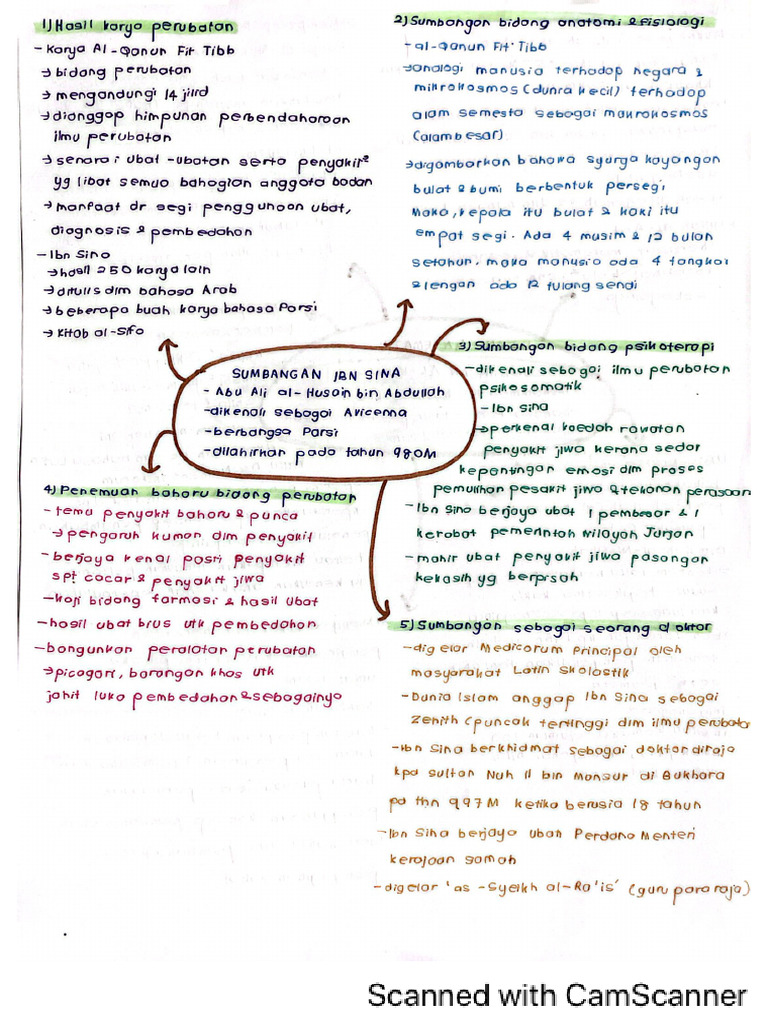 1) Hasil karya perubatan
- Karya Al-Qanun Fit Tibb
→ bidang perubatan
→ mengandungi 14 jilid
→ dianggap himpunan perbendaharaan
ilmu perubatan
→ senarai ubat-ubatan serta penyakit²
yg libat semua bahagian anggota badan
→ manfaat dr segi penggunaan ubat,
diagnosis & pembedahan
- Ibn Sina
→ hasil 250 karya lain
→ ditulis dlm bahasa Arab
→ beberapa buah karya bahasa Parsi
→ kitab al-sifa
2) Sumbangan bidang anatomi & fisiologi
- al-Qanun Fit Tibb
→ analogi manusia terhadap negara &
mikrokosmos (dunia kecil) terhadap
alam semesta sebagai makrokosmos
(alam besar)
→ digambarkan bahawa syurga kayangan
bulat & bumi berbentuk persegi
Maka, kepala itu bulat & kaki itu
empat segi. Ada 4 musim & 12 bulan
setahun, maka manusia ada 4 tangkai
& lengan ada 12 tulang sendi
SUMBANGAN IBN SINA
- Abu Ali al-Husain bin Abdullah
- dikenali sebagai Avicenna
- berbangsa Parsi
- dilahirkan pada tahun 980M
3) Sumbangan bidang psikoterapi
- dikenali sebagai ilmu perubatan
psikosomatik
- Ibn sina
→ perkenal kaedah rawatan
penyakit jiwa kerana sedar
kepentingan emosi dlm proses
pemulihan pesakit jiwa & tekanan perasaan
- Ibn Sina berjaya ubat 1 pembesar & 1
kerabat pemerintah wilayah Jurjan
- mahir ubat penyakit jiwa pasangan
kekasih yg berpisah
4) Penemuan baharu bidang perubatan
- temu penyakit baharu & punca
→ pengaruh kuman dlm penyakit
- berjaya kenal pasti penyakit
spt cacar & penyakit jiwa
- kaji bidang farmasi & hasil ubat
- hasil ubat bius utk pembedahan
- bangunkan peralatan perubatan
→ picagari, barangan khas utk
jahit luka pembedahan & sebagainya
5) Sumbangan sebagai seorang doktor
- digelar Medicorum Principal oleh
masyarakat Latin Skolastik
- Dunia Islam anggap Ibn Sina sebagai
zenith (puncak tertinggi dlm ilmu perubata
- Ibn Sina berkhidmat sebagai doktor diraja
kpd sultan Nuh II bin Mansur di Bukhara
pd thn 997M ketika berusia 18 tahun
- Ibn Sina berjaya ubati Perdana Menteri
kerajaan samah
- digelar 'as-Syeikh al-Ra'is' (guru para raja)
Scanned with CamScanner